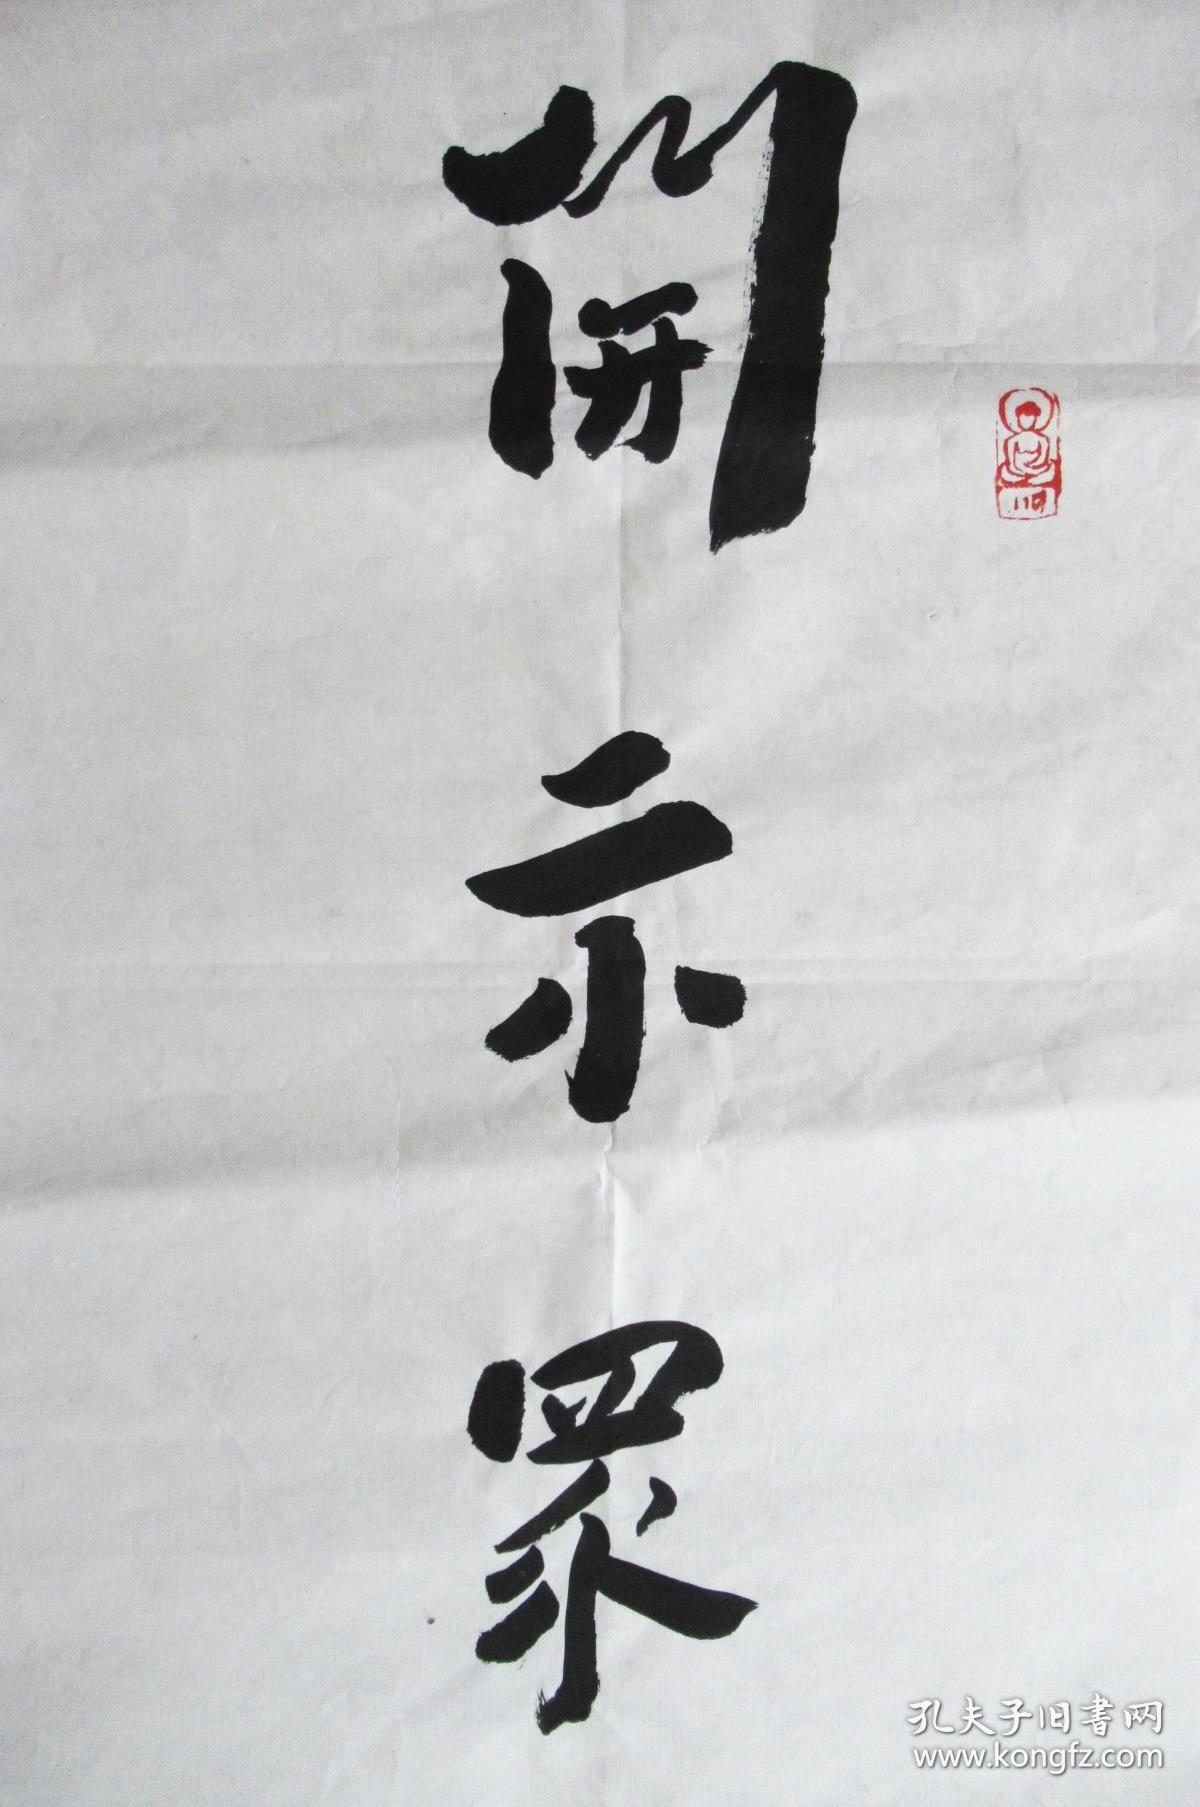 開示眾
孔夫子旧書网
www.kongfz.com